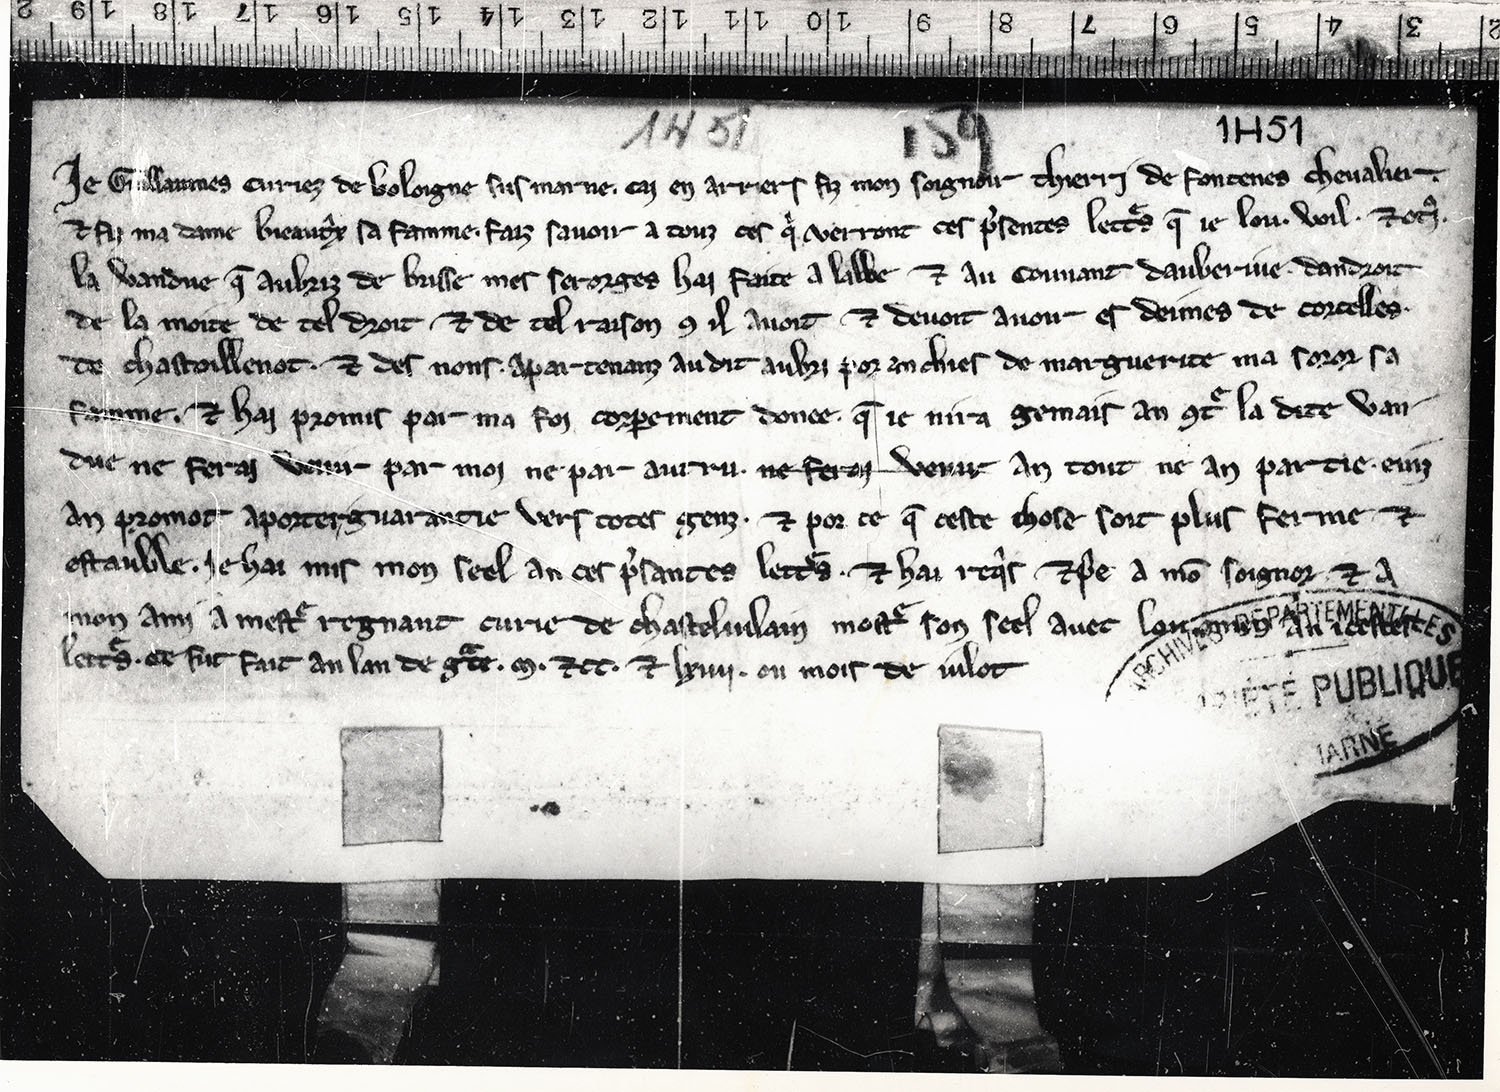 1H51 159 1H51
Je Guillaumes curiez de boloigne sus marne. cai en arriers fiz mon soignour thierri de fontenes chevalier.
& fiz ma dame sa famme. faiz savoir a touz ces q̇ verront ces p̓sentes lettᵃs q̄ ie lou. woil. &
la vandue q̄ aubriz de brisse mes serorges hai faite a labbe & au couvant dauberive. dandroit
de la moite de tel droit & de tel raison ꝯ il avoit & devoit avoir es deimes de corcelles.
de chastoillenot. & des nons. apartenanz audit aubri por anchies de marguerite ma soror sa
famme. & hai promis par ma foi corpement donee. q̄ ie nira gemais an ꝯtᵉ la dite van
due ne ferai venir par moi ne par autru. ne ferai venir an tout ne an partie. einz
an promot aporter guarantie vers totes genz. & por ce q̄ ceste chose soit plus ferme &
estauble. Je hai mis mon seel an ces p̓santes lettᵃs. & hai req̇s & p̓e a mō soignor & a
mon ami a mestᵉ regnaut curie de chastelvilain mostᵉ son seel avec lou an icestes
lettᵃs. ce fut fait an lan de gᵃce. m. & cc. & lxiiij. ou mois de iulot
ARCHIVES DEPARTEMENTALES
PUBLIQUE
MARNE
2 19 18 17 16 15 14 13 12 11 10 9 8 7 6 5 4 3 2